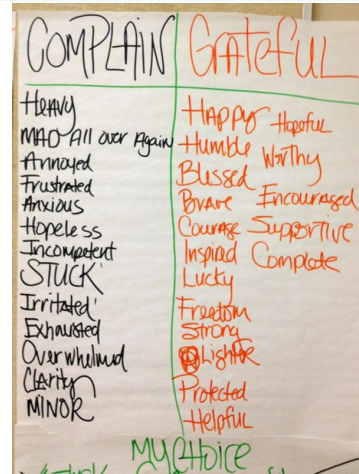 COMPLAIN
HEAVY
MAD All over Again
Annoyed
Frustrated
Anxious
Hopeless
Incompetent
STUCK
Irritated
Exhausted
Overwhelmed
Clarity
MINOR
GRATEFUL
HAPPY Hopeful
Humble Worthy
Blessed
Brave Encouraged
Courage Supportive
Inspired Complete
Lucky
Freedom
Strong
Lighter
Protected
Helpful
MY CHOICE